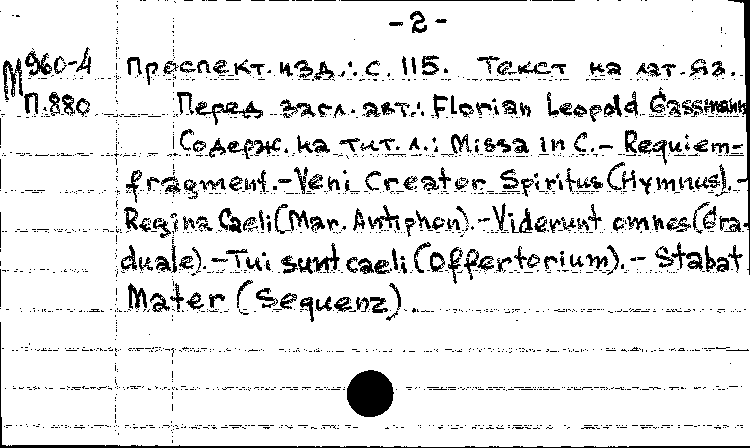 -2-
М960-4 Проспект. изд.: с. 115. Текст на лат. яз.
П.880 Перед загл. авт.: Florian Leopold Gassmann
Содерж. на тит. л.: Missa in C. - Requiem-
fragment. - Veni Creator Spiritus (Hymnus). -
Regina Caeli (Mar. Antiphon). - Viderunt omnes (Gra-
duale). - Tui sunt caeli (Offertorium). - Stabat
Mater (Sequenz).